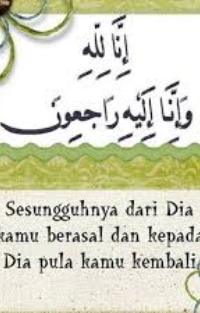 إِنَّا لِلّهِ
وَإِنَّا إِلَيْهِ رَاجِعونَ
Sesungguhnya dari Dia
kamu berasal dan kepada
Dia pula kamu kembali